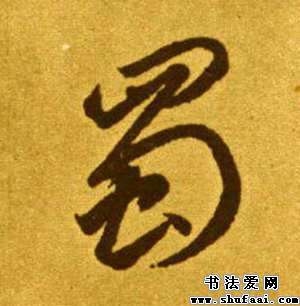 蜀
书法爱网
www.shufaai.com